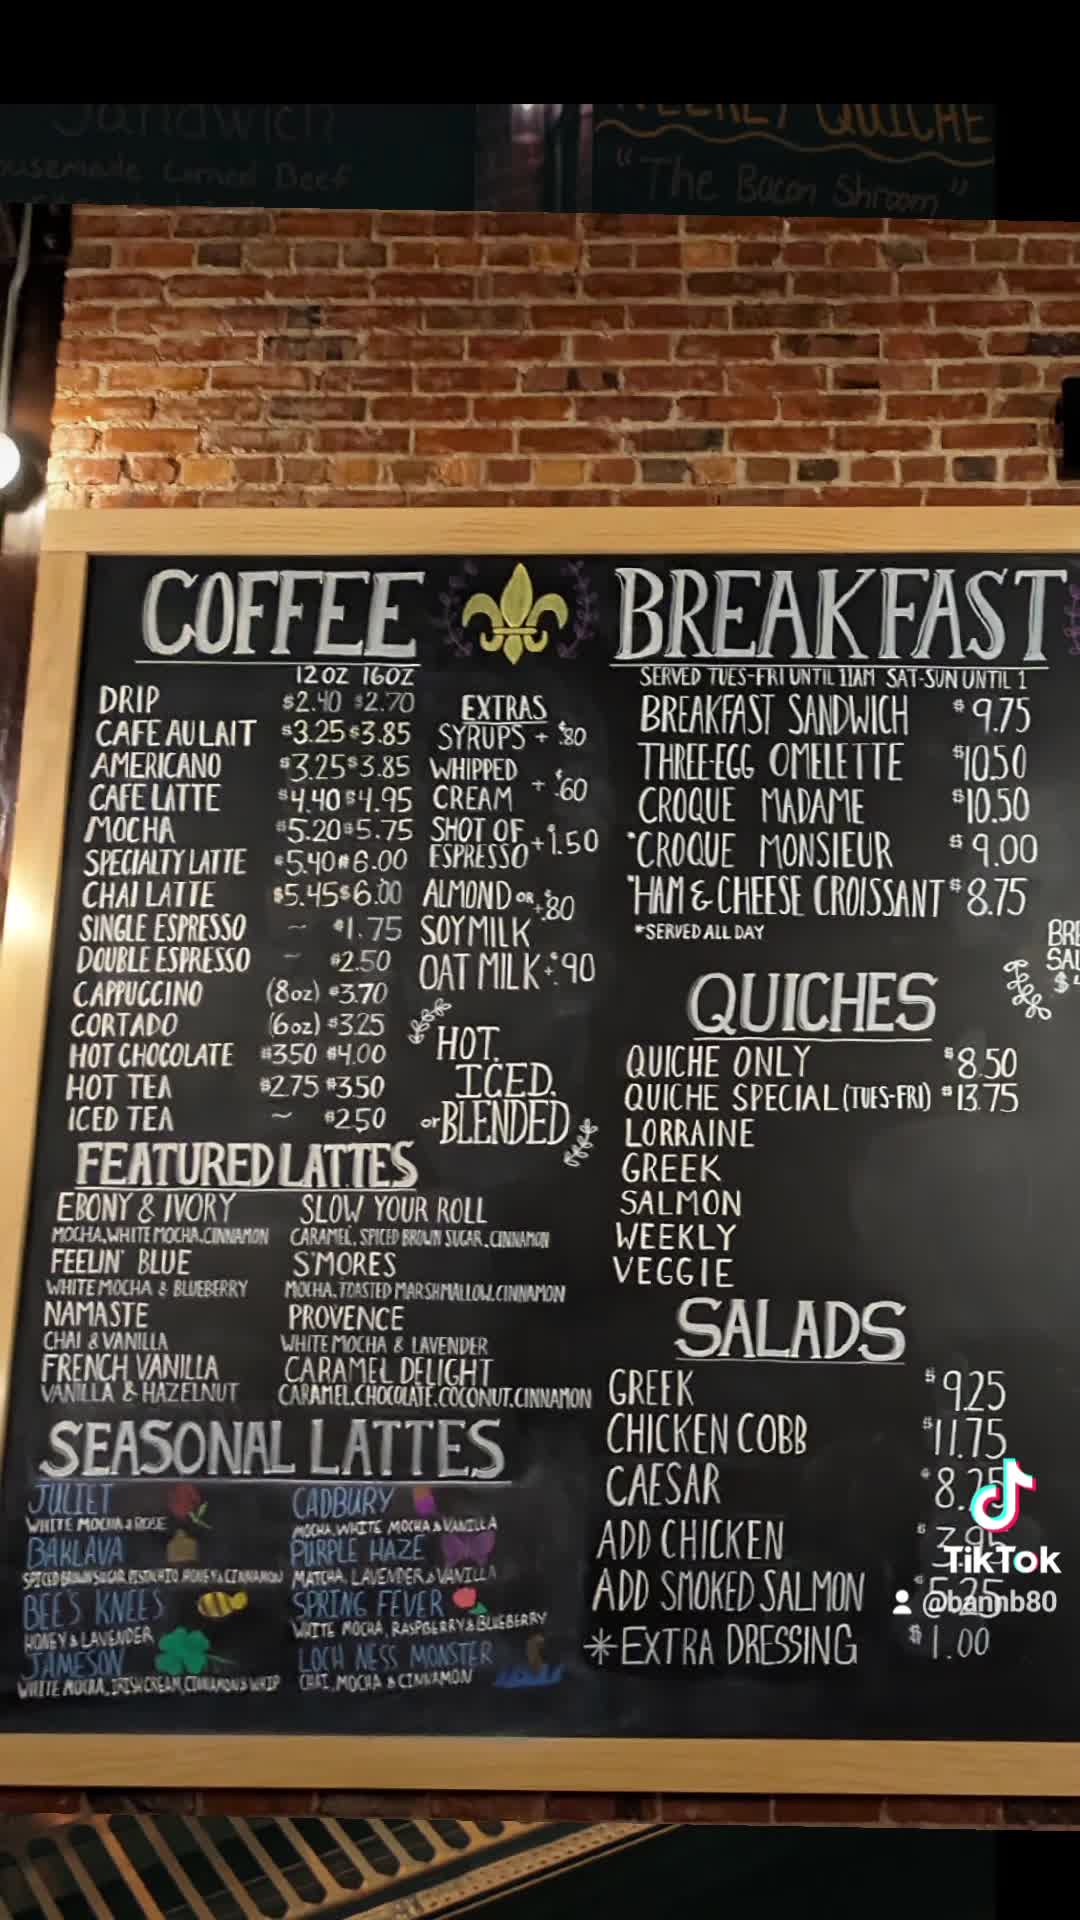 Sandwich
Corned Beef
WEEKLY QUICHE
"The Bacon Shroom"
COFFEE
12 OZ 16 OZ
DRIP $2.40 $2.70
CAFE AU LAIT $3.25 $3.85
AMERICANO $3.25 $3.85
CAFE LATTE $4.40 $4.95
MOCHA $5.20 $5.75
SPECIALTY LATTE $5.40 $6.00
CHAI LATTE $5.45 $6.00
SINGLE ESPRESSO ~ $1.75
DOUBLE ESPRESSO ~ $2.50
CAPPUCCINO (8oz) $3.70
CORTADO (6oz) $3.25
HOT CHOCOLATE $3.50 $4.00
HOT TEA $2.75 $3.50
ICED TEA ~ $2.50
EXTRAS
SYRUPS + $.80
WHIPPED
CREAM + $.60
SHOT OF
ESPRESSO +$1.50
ALMOND OR
SOY MILK +$.80
OAT MILK +$.90
HOT,
ICED,
or BLENDED
FEATURED LATTES
EBONY & IVORY
MOCHA, WHITE MOCHA, CINNAMON
FEELIN' BLUE
WHITE MOCHA & BLUEBERRY
NAMASTE
CHAI & VANILLA
FRENCH VANILLA
VANILLA & HAZELNUT
SLOW YOUR ROLL
CARAMEL, SPICED BROWN SUGAR, CINNAMON
S'MORES
MOCHA, TOASTED MARSHMALLOW, CINNAMON
PROVENCE
WHITE MOCHA & LAVENDER
CARAMEL DELIGHT
CARAMEL, CHOCOLATE, COCONUT, CINNAMON
SEASONAL LATTES
JULIET
WHITE MOCHA & ROSE
BAKLAVA
SPICED BROWN SUGAR, PISTACHIO, HONEY & CINNAMON
BEE'S KNEES
HONEY & LAVENDER
JAMESON
WHITE MOCHA, IRISH CREAM, CINNAMON & WHIP
CADBURY
MOCHA, WHITE MOCHA & VANILLA
PURPLE HAZE
MATCHA, LAVENDER & VANILLA
SPRING FEVER
WHITE MOCHA, RASPBERRY & BLUEBERRY
LOCH NESS MONSTER
CHAI, MOCHA & CINNAMON
BREAKFAST
SERVED TUES-FRI UNTIL 11AM SAT-SUN UNTIL 1
BREAKFAST SANDWICH $9.75
THREE-EGG OMELETTE $10.50
CROQUE MADAME $10.50
*CROQUE MONSIEUR $9.00
*HAM & CHEESE CROISSANT $8.75
*SERVED ALL DAY
QUICHES
QUICHE ONLY $8.50
QUICHE SPECIAL (TUES-FRI) $13.75
LORRAINE
GREEK
SALMON
WEEKLY
VEGGIE
SALADS
GREEK $9.25
CHICKEN COBB $11.75
CAESAR $8.25
ADD CHICKEN $3.95
ADD SMOKED SALMON $5.25
*EXTRA DRESSING $1.00
TikTok
@bannb80